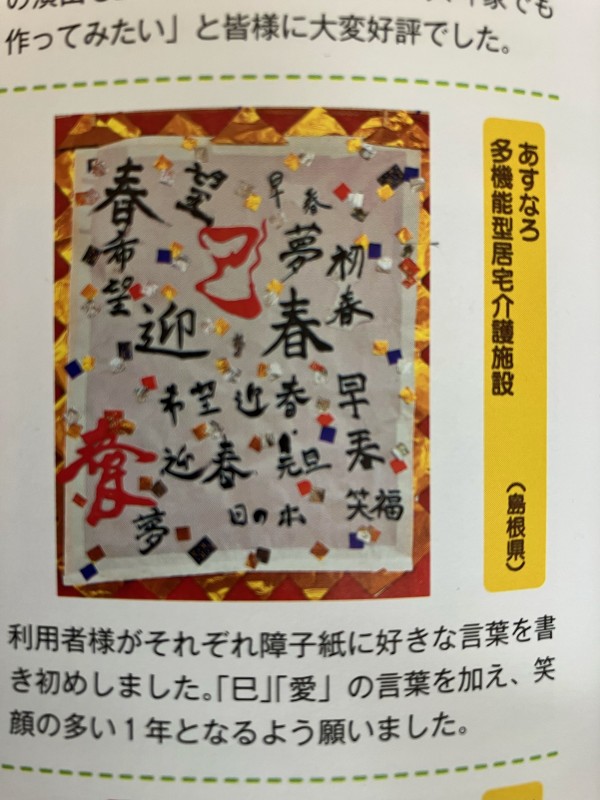 作ってみたい」と皆様に大変好評でした。
あすなろ
多機能型居宅介護施設
（島根県）
春
望
早春
希望
巳
夢
初春
迎
春
希望
迎春
早春
迎春
元旦
愛
夢
日の出
笑福
利用者様がそれぞれ障子紙に好きな言葉を書
き初めしました。「巳」「愛」の言葉を加え、笑
顔の多い１年となるよう願いました。